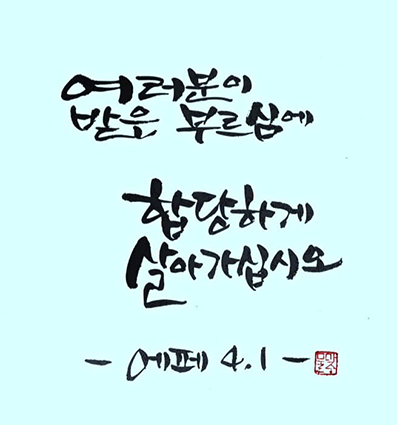 여러분이
받은 부르심에
합당하게
살아가십시오
- 에페 4.1 -